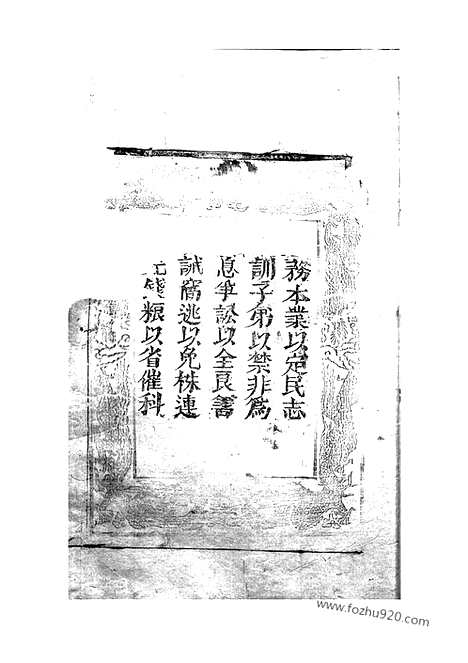 務本業以定民志
訓子弟以禁非為
息爭訟以全良善
誡窩逃以免株連
完錢粮以省催科
www.fozhu920.com